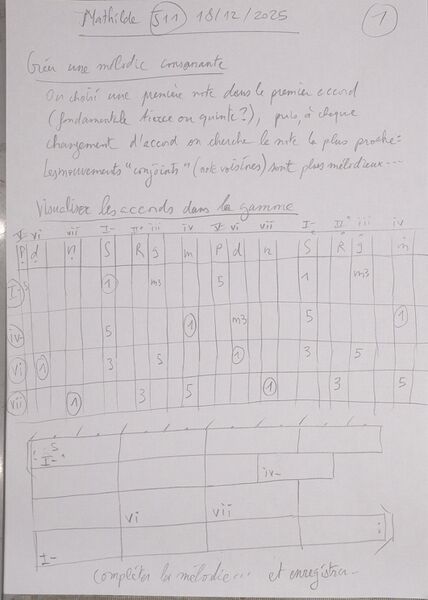 Mathilde S11 18/12/2025
1
Créer une mélodie consonante
On choisi une première note dans le premier accord
(fondamentale tierce ou quinte?), puis, à chaque
changement d'accord on cherche la note la plus proche:
Les mouvements "conjoints" (note voisines) sont plus mélodieux...
Visualiser les accords dans la gamme
V vi vii I- II° iii iv V vi vii I- II° iii iv
P d n S R g m P d n S R g m
I- 5 1 m3 5 1 m3
iv- 5 1 m3 5 1
vi 1 3 5 1 3 5
vii 1 3 5 1 3 5
S
I-
iv-
vi vii
I-
Compléter la mélodie... et enregistrer